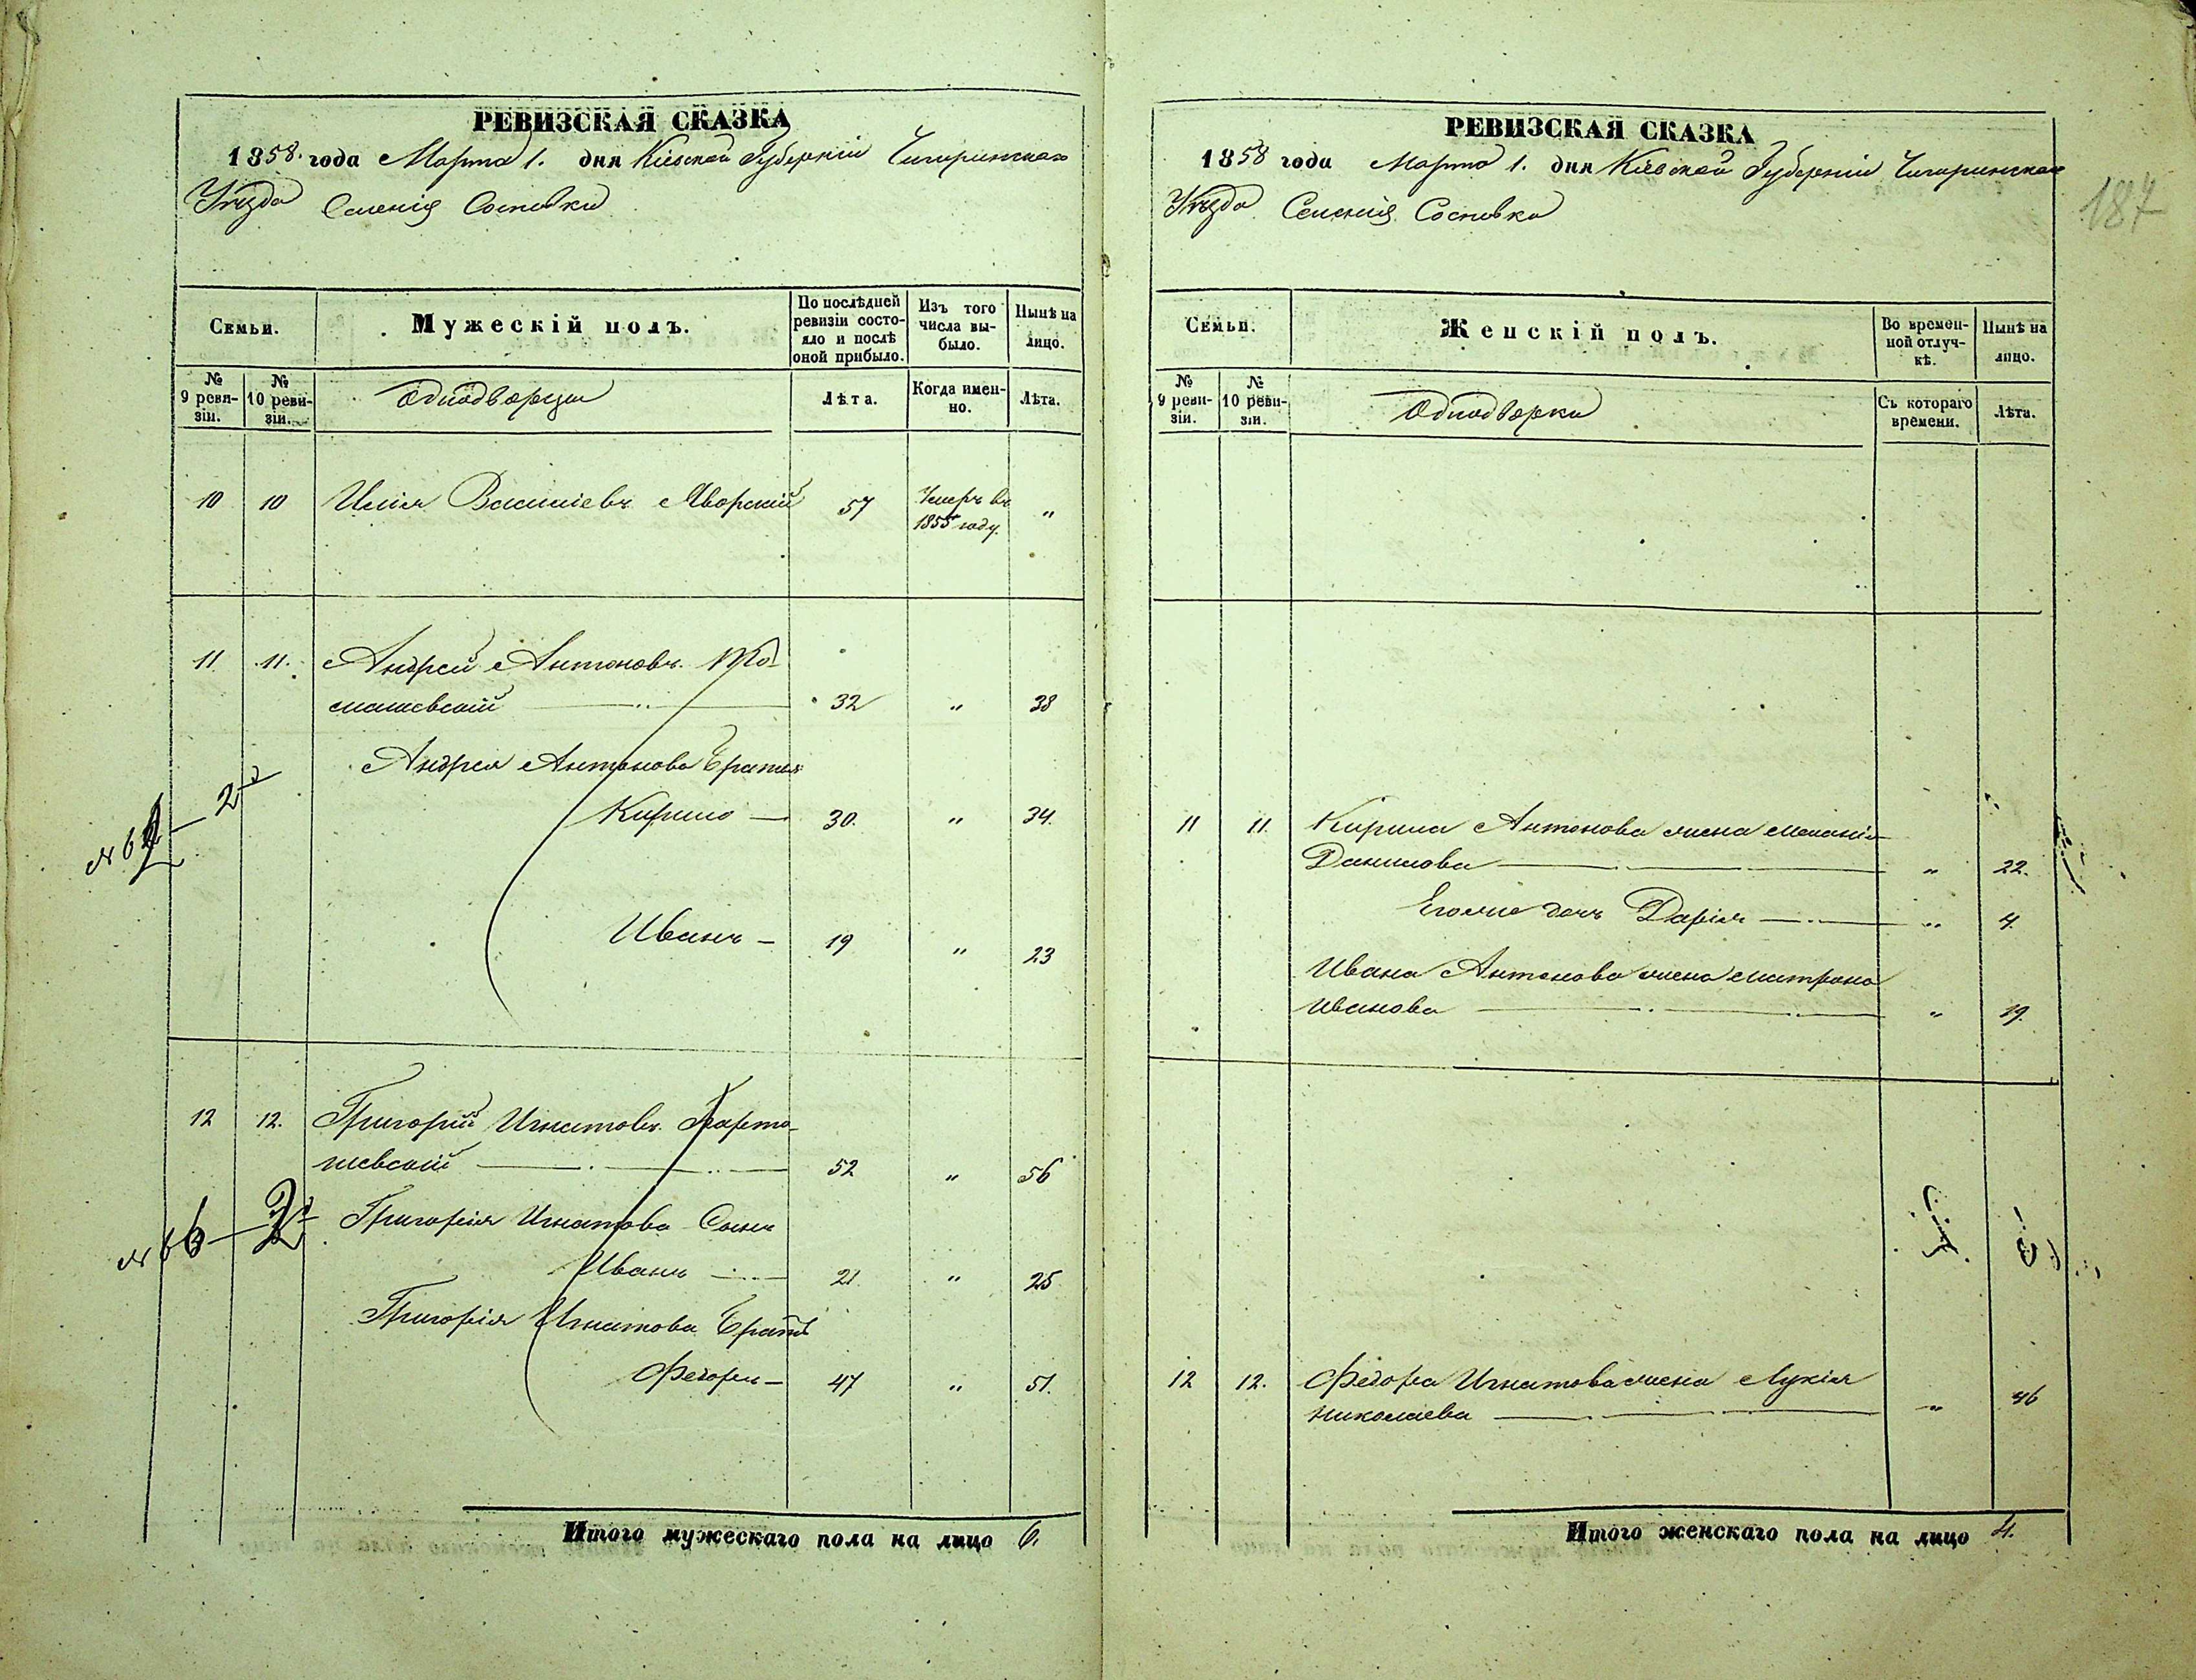 РЕВИЗСКАЯ СКАЗКА
1858. года Марта 1. дня Кіевской Губерніи Чигиринскаго
Уѣзда Селенія Сосновки
Семьи.
Мужескій полъ.
По послѣдней ревизіи состояло и послѣ оной прибыло.
Изъ того числа выбыло.
Нынѣ на лицо.
№ 9 ревизіи.
№ 10 ревизіи.
Однодворцы
Лѣта.
Когда именно.
Лѣта.
10 10 Илія Василіевъ Яворскій 57 Умеръ въ 1855 году. "
11 11. Андрей Антоновъ То-
машевскій 32 " 38
Андрея Антонова братья
Кирило 30. " 34.
Иванъ 19 " 23
12 12. Григорій Игнатовъ Барто-
шевскій 52 " 56
Григорія Игнатова Сынъ
Иванъ 21. " 25
Григорія Игнатова братъ
Федоръ 47 " 51.
Итого мужескаго пола на лицо 6.
РЕВИЗСКАЯ СКАЗКА
1858 года Марта 1. дня Кіевской Губерніи Чигиринскаго
Уѣзда Селенія Сосновки
187
Семьи.
Женскій полъ.
Во временной отлучкѣ.
Нынѣ на лицо.
№ 9 ревизіи.
№ 10 ревизіи.
Однодворки
Съ котораго времени.
Лѣта.
11 11. Кирила Антонова жена Меланія
Данилова " 22.
Его же дочь Дарія " 4.
Ивана Антонова жена Матрона
Иванова " 19.
12 12. Федора Игнатова жена Лукія
Николаева " 46
Итого женскаго пола на лицо 4.